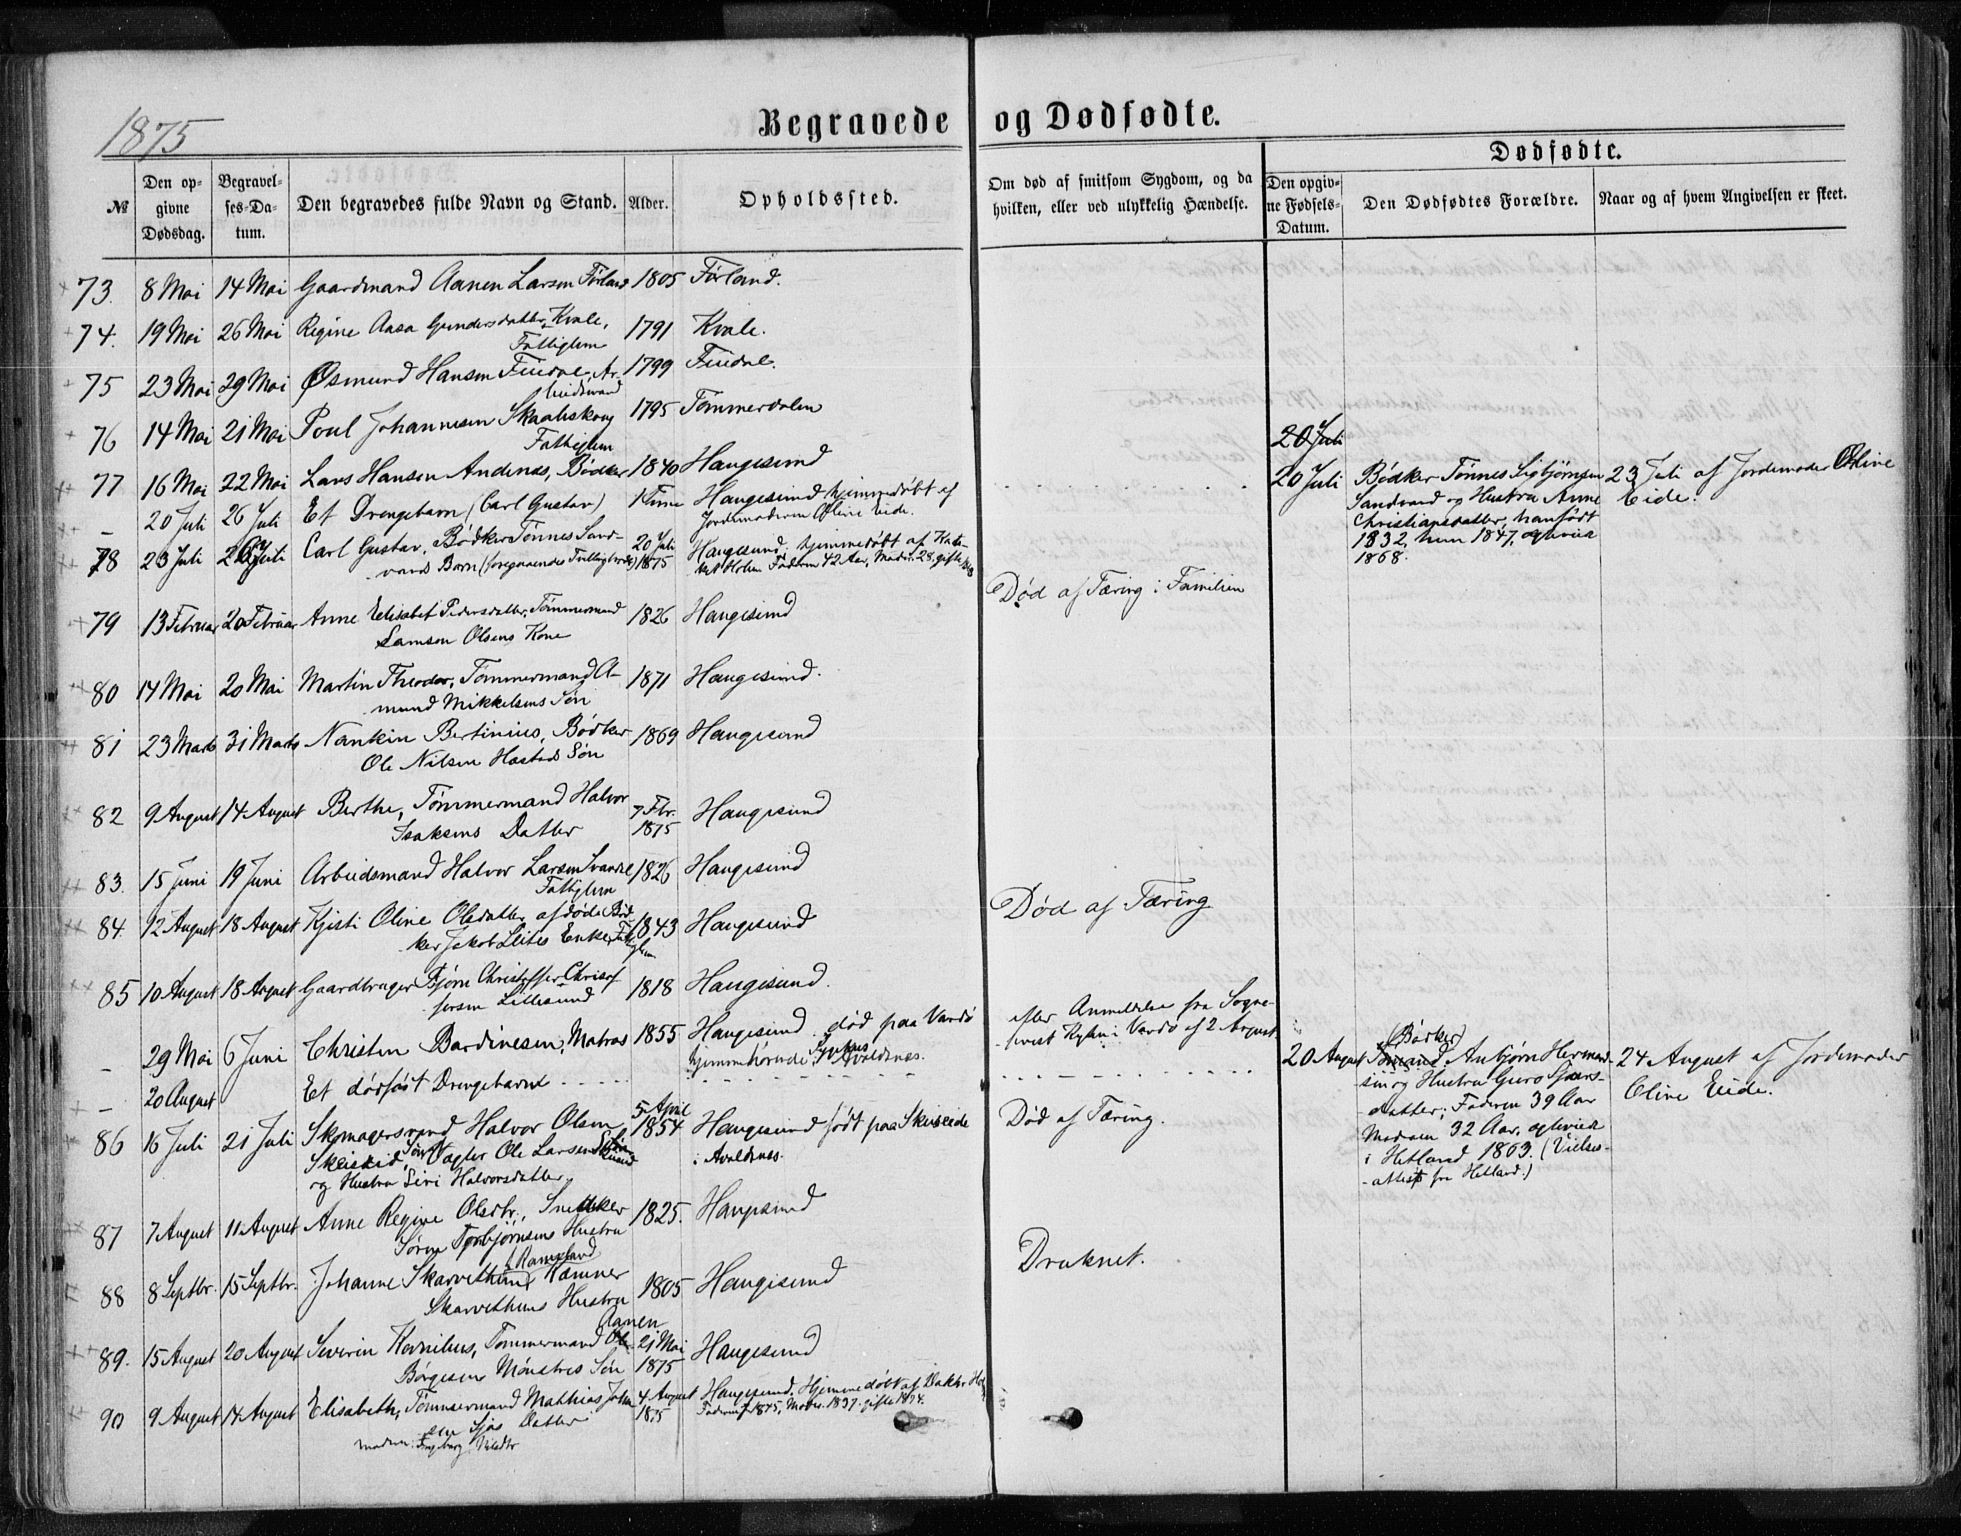 1875
Begravede og Dødfødte.
Dødfødte.
№
Den op-
givne
Dødsdag.
Begravel-
ses-Da-
tum.
Den begravedes fulde Navn og Stand.
Alder.
Opholdssted.
Om død af smitsom Sygdom, og da
hvilken, eller ved ulykkelig Hændelse.
Den opgiv-
ne Fødsels-
Datum.
Den Dødfødtes Forældre.
Naar og af hvem Angivelsen er skeet.
73. 8 Mai 14 Mai Gaardmand Aanen Larsen Førland 1805 Førland.
74. 19 Mai 26 Mai Regine Aasa Gundersdatter Kvale, 1791 Kvale.
Fattiglem
75 23 Mai 29 Mai Øsmund Hansen 1799
Ar-
beidsmand
76 14 Mai 21 Mai Poul Johannesen Skaaliskoug 1795 Tømmerdalen
Fattiglem
20 Juli
77 16 Mai 22 Mai Lars Hansen Andenes, Bødker 1840 Haugesund
– 20 Juli 26 Juli Et Drengebarn (Carl Gustav) 1 Time Haugesund hjemmedøbt af
Jordemoderen Oline Eide.
20 Juli Bødker Tønnes Sigbjørnsen
Sandvand og Hustru Anne
Christiansdatter, han født
1832, hun 1847, egteviet
1868.
23 Juli af Jordemoder Oline
Eide.
78 23 Juli 26 Juli Carl Gustav, Bødker Tønnes Sand-
vands Barn (foregaaendes Tvillingbroder) 20 Juli 1875
Haugesund. hjemmedøbt af
Holm Faderen 42 Aar, Mod. 28, gifte 1868
79 13 Februar 20 Februar Anne Elisabet Pedersdatter, Tømmermand 1826 Haugesund
Samson Olsens Kone
Død af Tæring i Familien
80 14 Mai 20 Mai Martin Theodor, Tømmermand A- 1871 Haugesund.
mund Mikkelsens Søn
81 23 Marts 31 Marts Nankin Bertinius, Bødker 1869 Haugesund
Ole Nilsen Hastads Søn
82 9 August 14 August Berthe, Tømmermand Halvor 7 Fbr. 1875 Haugesund
Isaksens Datter
83. 15 Juni 19 Juni Arbeidsmand Halvor Larsen 1826 Haugesund
Fattiglem
84. 12 August 18 August Kjisti Oline Olsdatter, afdøde Bød- 1843 Haugesund
ker Jakob Leites Enke, Fattiglem
Død af Tæring
85 10 August 18 August Gaardbruger Bjørn Christoffer Christof- 1818 Haugesund.
fersen Lillesund
– 29 Mai 6 Juni Christen Bardinesen, Matros 1855 Haugesund. død paa Vardø
hjemmehørende Avaldnes.
efter Anmeldelse fra Sogne-
prest i Vardø af 2 August
– 20 August Et dødfødt Drengebarn
20 August Bødker
Anbjørn Herman-
sen og Hustru Guro Sjurs-
datter; Faderen 39 Aar
Moderen 32 Aar, egteviet
i Hetland 1863. (Vielses-
attest fra Hetland.)
24 August af Jordemoder
Oline Eide.
86 16 Juli 21 Juli Skomagersvend Halvor Olsen 5 April 1854 Haugesund født paa Skeiseide
Skeiseid, Søn af Vagter Ole Larsen
og Hustru Siri Halvorsdatter
i Avaldnes.
Død af Tæring.
87 7 August 11 August Anne Regine Olsdtr., Snedker 1825. Haugesund
Søren Torbjørnsens Hustru
88 8 Septbr. 15 Septbr. Johanne Skarvethun, Kæmner 1805 Haugesund
Skarvethuns Hustru
Druknet.
89. 15 August 20 August Severin Kornelius, Tømmermand Aanen 21 Mai 1875 Haugesund
Børgesen Mønstres Søn
90 9 August 14 August Elisabeth, Tømmermand Mathias Johan- 4 August 1875 Haugesund. Hjemmedøbt af
sen Sjøs Datter
Faderen f. 1845, Moder. 1837. gifte 1874.
moder: Ingeborg